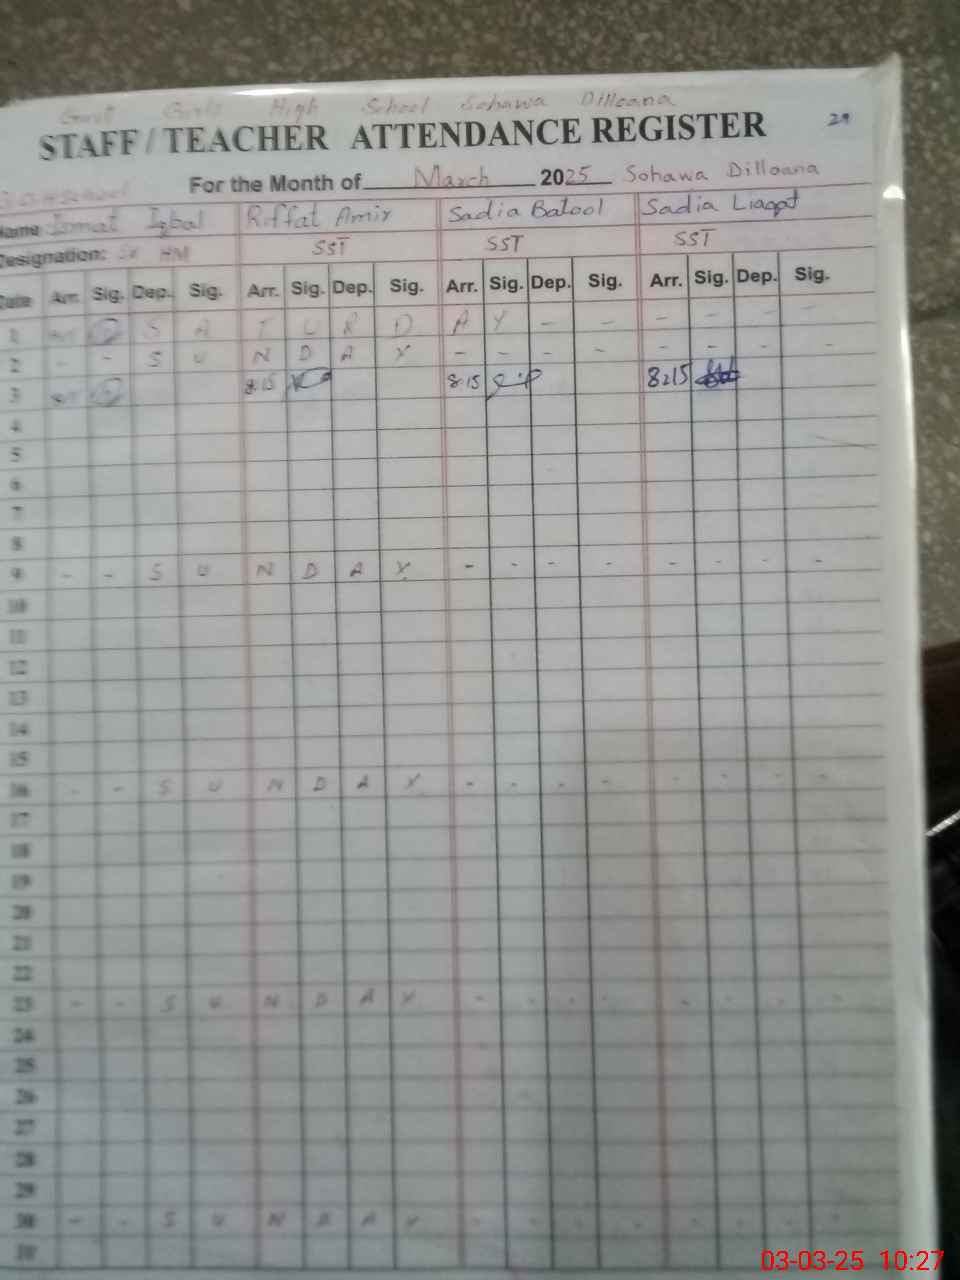 Govt Girls High School Sohawa Dilloana
STAFF / TEACHER ATTENDANCE REGISTER 29
For the Month of March 2025 Sohawa Dilloana
Name Ismat Iqbal Riffat Amir Sadia Batool Sadia Liaqat
Designation: Sr HM SST SST SST
Date Arr. Sig. Dep. Sig. Arr. Sig. Dep. Sig. Arr. Sig. Dep. Sig. Arr. Sig. Dep. Sig.
1 S A T U R D A Y - - - - - -
2 - - S U N D A Y - - - - - - - -
3 8:15 8:15 8:15
4
5
6
7
8
9 - - S U N D A Y - - - - - - - -
10
11
12
13
14
15
16 - - S U N D A Y - - - - - - - -
17
18
19
20
21
22
23 - - S U N D A Y - - - - - - - -
24
25
26
27
28
29
30 - - S U N D A Y - - - - - - - -
31
03-03-25 10:27